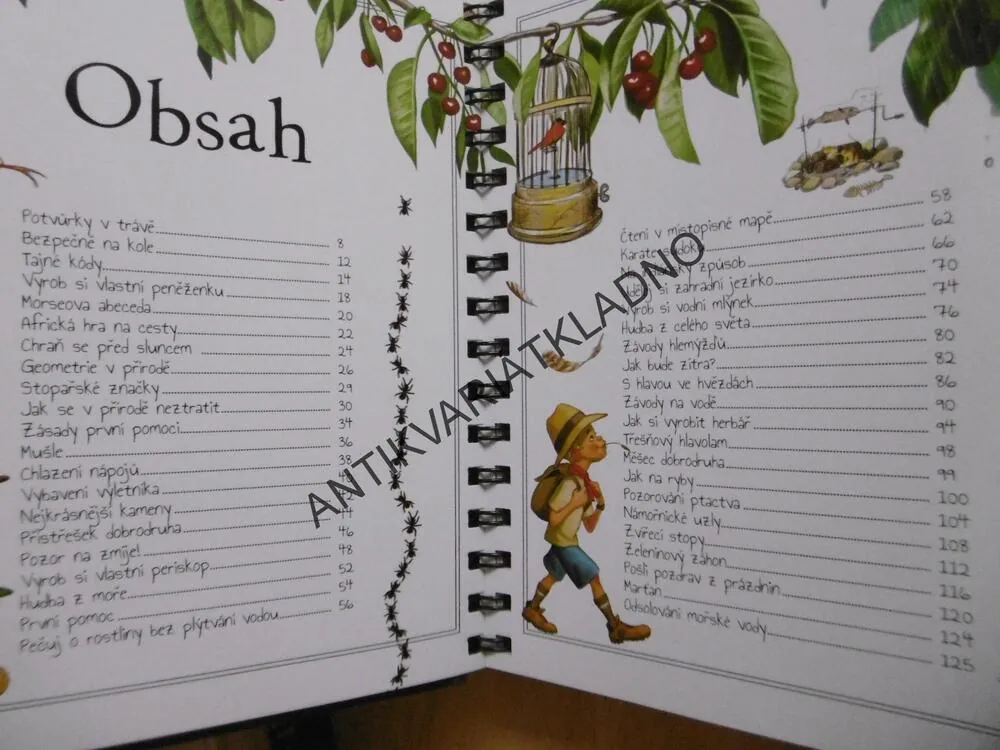 Obsah
Potvůrky v trávě 8
Bezpečně na kole 12
Tajné kódy 14
Vyrob si vlastní peněženku 18
Morseova abeceda 20
Africká hra na cesty 22
Chraň se před sluncem 24
Geometrie v přírodě 26
Stopařské značky 29
Jak se v přírodě neztratit 30
Zásady první pomoci 34
Mušle 36
Chlazení nápojů 38
Vybavení výletníka
Nejkrásnější kameny
Přístřešek dobrodruha 44
Pozor na zmije! 46
Vyrob si vlastní periskop 48
Hudba z moře 52
První pomoc 54
Pečuj o rostliny bez plýtvání vodou 56
Čtení v místopisné mapě 58
Karate 62
způsob 66
si zahradní jezírko 70
Vyrob si vodní mlýnek 74
Hudba z celého světa 76
Závody hlemýžďů 80
Jak bude zítra? 82
S hlavou ve hvězdách 86
Závody na vodě 90
Jak si vyrobit herbář 94
Třešňový hlavolam 98
Měšec dobrodruha 99
Jak na ryby 100
Pozorování ptactva 104
Námořnické uzly 108
Zvířecí stopy 112
Zeleninový záhon 116
Pošli pozdrav z prázdnin 120
Marťan 124
Odsolování mořské vody 125
ANTIKVARIATKLADNO